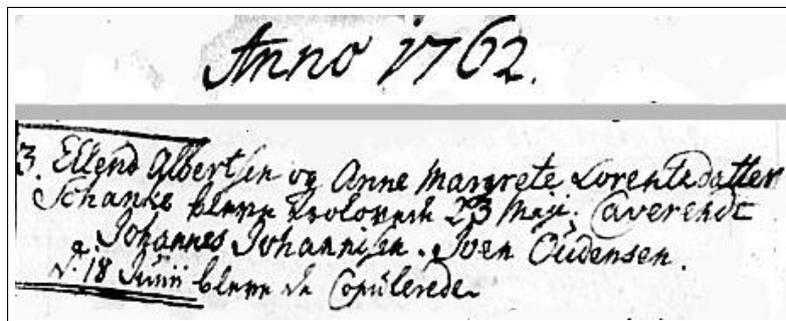 Anno 1762.
3. Ellend Albertsen og Anne Margrete Lorentzdatter
Schanke bleve trolovede 23 Maji. Caverende
Johannes Johannisen. Iven Oudensen.
d. 18 Junii bleve de Copulerede